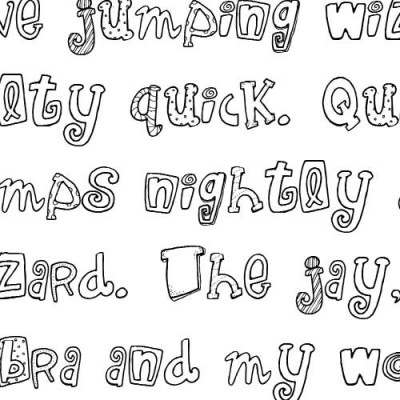 ve jumping wiz
elty quick. Qu
mps nightly
zard. The jay,
bra and my wo